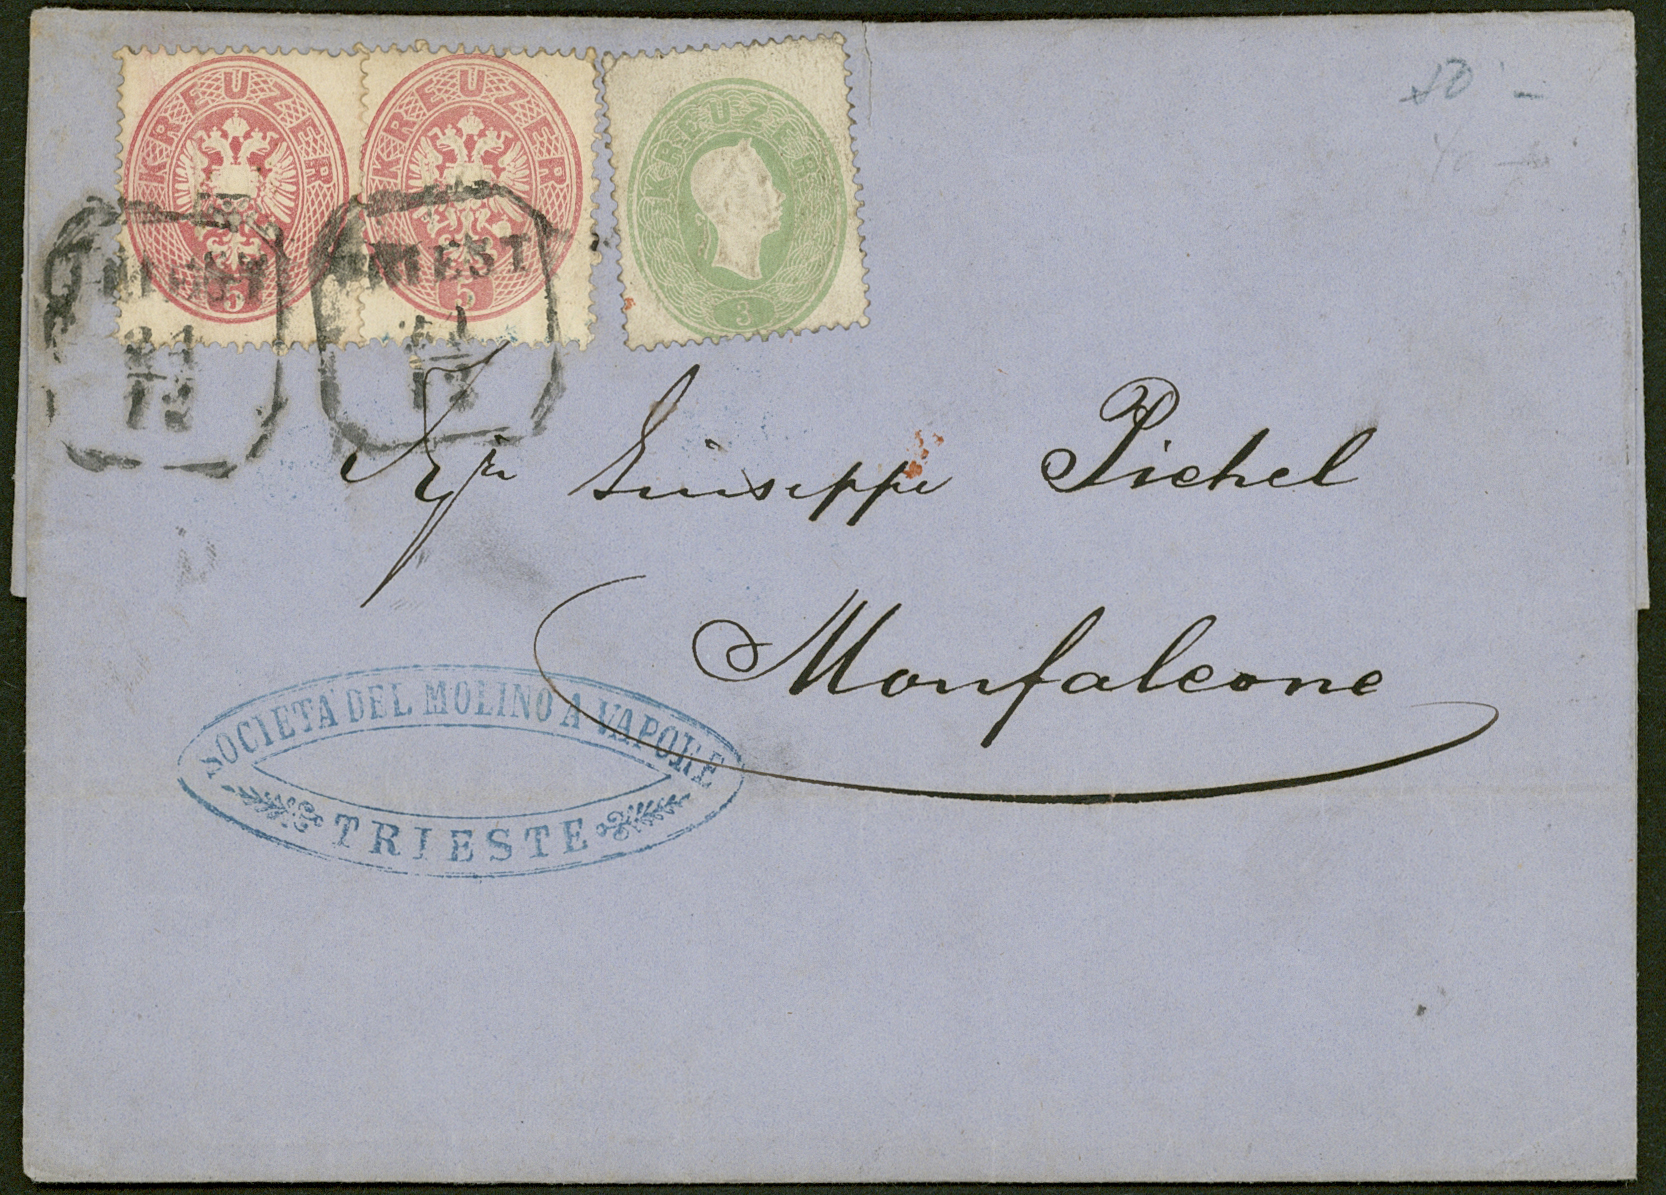 KREUZER
5
KREUZER
5
KREUZER
3
TRIEST
24
12
TRIEST
24
12
Giuseppe Pichel
Monfalcone
SOCIETA DEL MOLINO A VAPORE
TRIESTE